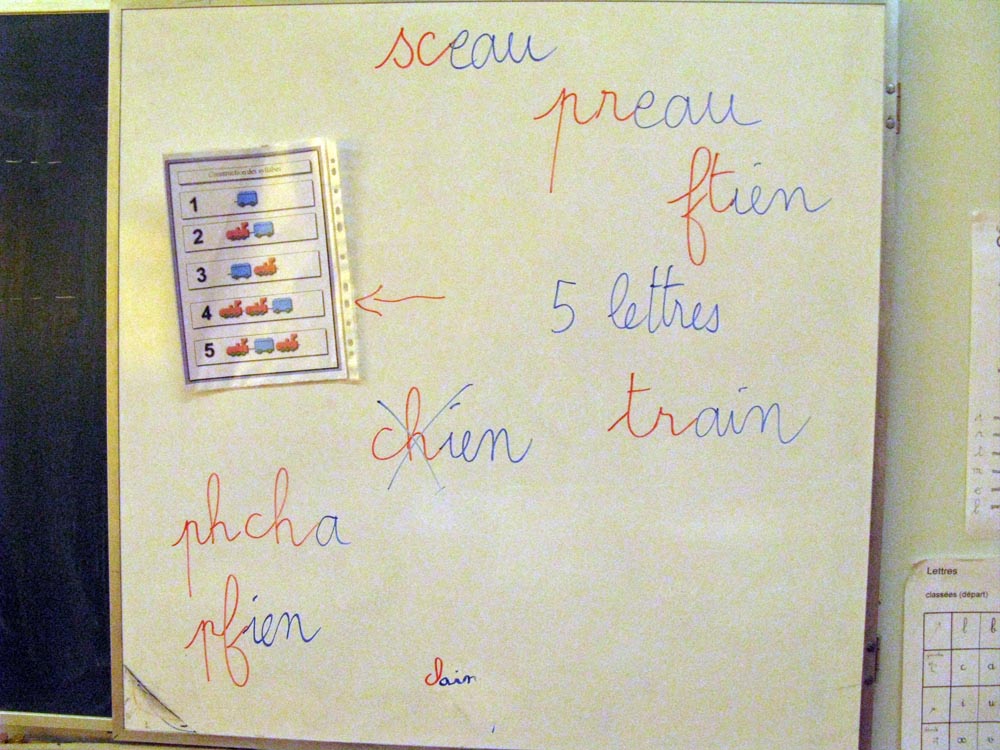 sceau
preau
ftien
Construction des syllabes
1
2
3
4
5
5 lettres
chien
train
phcha
pfien
clain
Lettres
classées (départ)
l b
c a
i u